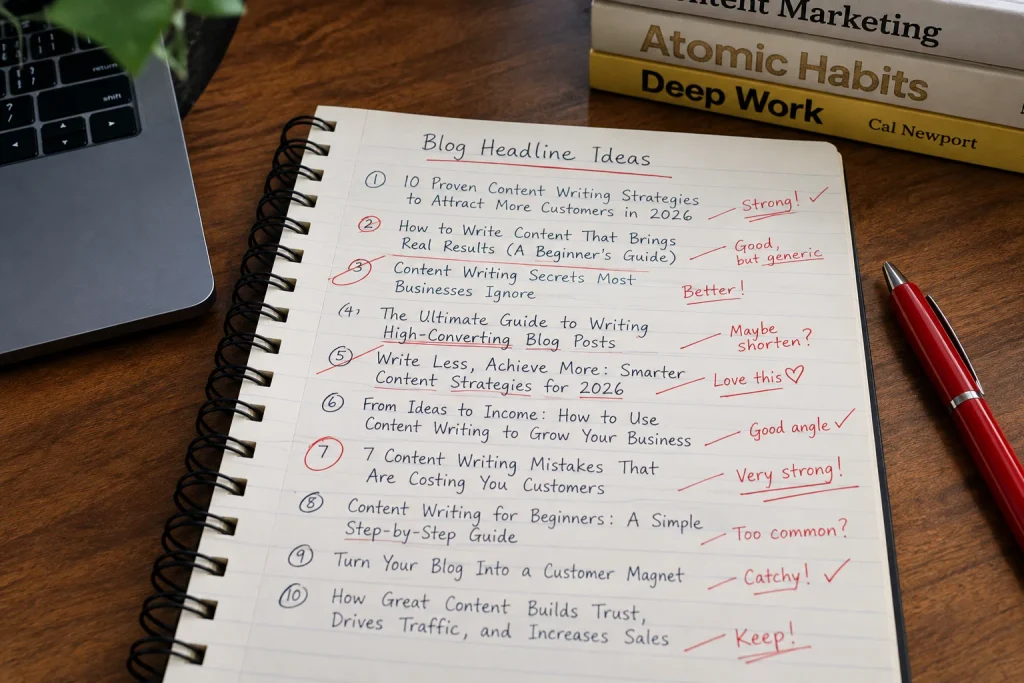 Content Marketing
Atomic Habits
Deep Work Cal Newport
return
shift
Blog Headline Ideas
① 10 Proven Content Writing Strategies
to Attract More Customers in 2026
Strong! ✓
② How to Write Content That Brings
Real Results (A Beginner's Guide)
Good,
but generic
③ Content Writing Secrets Most
Businesses Ignore
Better!
(4) The Ultimate Guide to Writing
High-Converting Blog Posts
Maybe
shorten?
⑤ Write Less, Achieve More: Smarter
Content Strategies for 2026
Love this ♡
⑥ From Ideas to Income: How to Use
Content Writing to Grow Your Business
Good angle ✓
⑦ 7 Content Writing Mistakes That
Are Costing You Customers
Very strong!
⑧ Content Writing for Beginners: A Simple
Step-by-Step Guide
Too common?
⑨ Turn Your Blog Into a Customer Magnet
Catchy! ✓
⑩ How Great Content Builds Trust,
Drives Traffic, and Increases Sales
Keep!